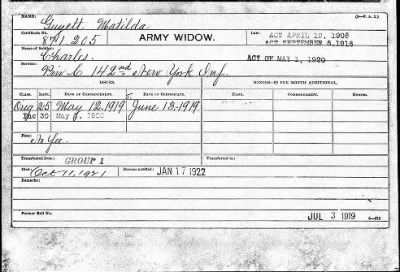 NAME:
(3—P. A. I.)
Guyett Matilda
Certificate No.
871.205
ARMY WIDOW.
Law:
ACT APRIL 19, 1908
ACT SEPTEMBER 8, 1916
Name of Soldier:
Charles
ACT OF MAY 1, 1920
Service:
Priv. C 142nd New York Inf.
ISSUES.
MINORS—$2 PER MONTH ADDITIONAL.
CLASS.
RATE.
DATE OF COMMENCEMENT.
DATE OF CERTIFICATE.
NAME.
COMMENCEMENT.
ENDING.
Orig 25 May 12.1919 June 13-1919
Inc 30 May 1. 1920
Transferred from:
GROUP 1
Died
Oct 11, 1921
Bureau notified:
JAN 17 1922
Remarks:
Former Roll No.
JUL 3 1919